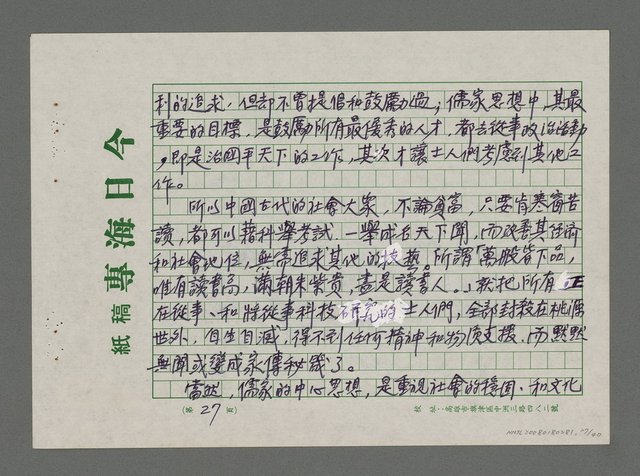 利的追求，但却不曾提倡和鼓勵過；儒家思想中，其最
重要的目標，是鼓勵所有最優秀的人才，都去從事政治活動
，即是治國平天下的工作，其次才讓士人們考慮到其他工
作。
所以中國古代的社會大眾，不論貧富，只要肯寒窗苦
讀，都可以藉科舉考試，一舉成名天下聞，而改善其經濟
和社會地位，無需追求其他的技藝，所謂「萬般皆下品，
唯有讀書高，滿朝朱紫貴，盡是讀書人。」就把所有正
在從事、和將從事科技研究的士人們，全部封殺在桃源
世外，自生自滅，得不到任何精神和物質支援，而默默
無聞或變成家傳秘笈了。
當然，儒家的中心思想，是重視社會的穩固、和文化
今日海專
稿紙
（第27頁）
校址：高雄市旗津區中洲三路四八二號
NMTL20080180281.27/40